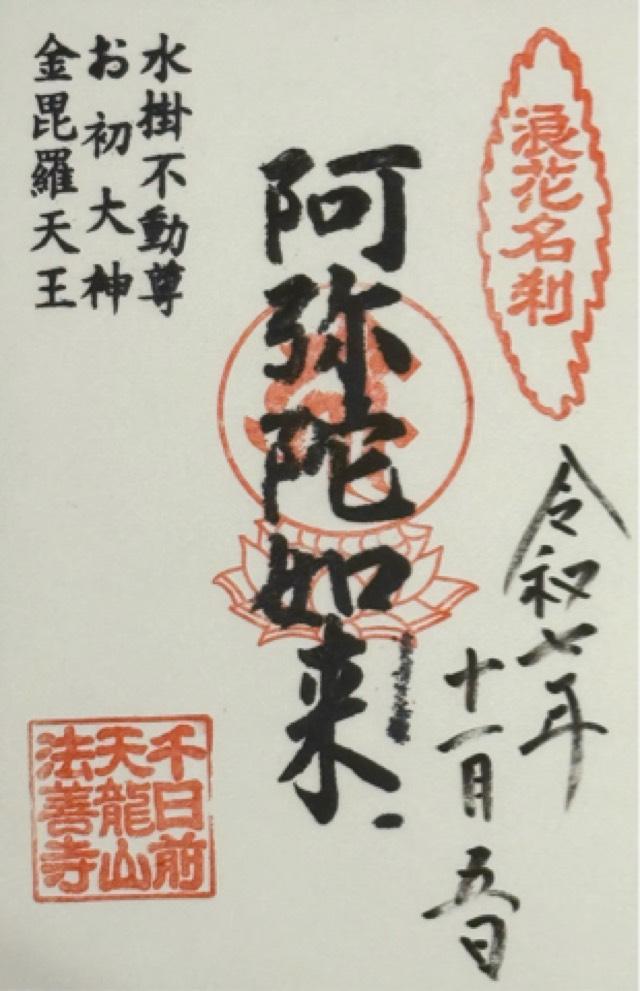 浪花名刹
令和七年
十一月五日
阿弥陀如来
水掛不動尊
お初大神
金毘羅天王
千日前
天龍山
法善寺